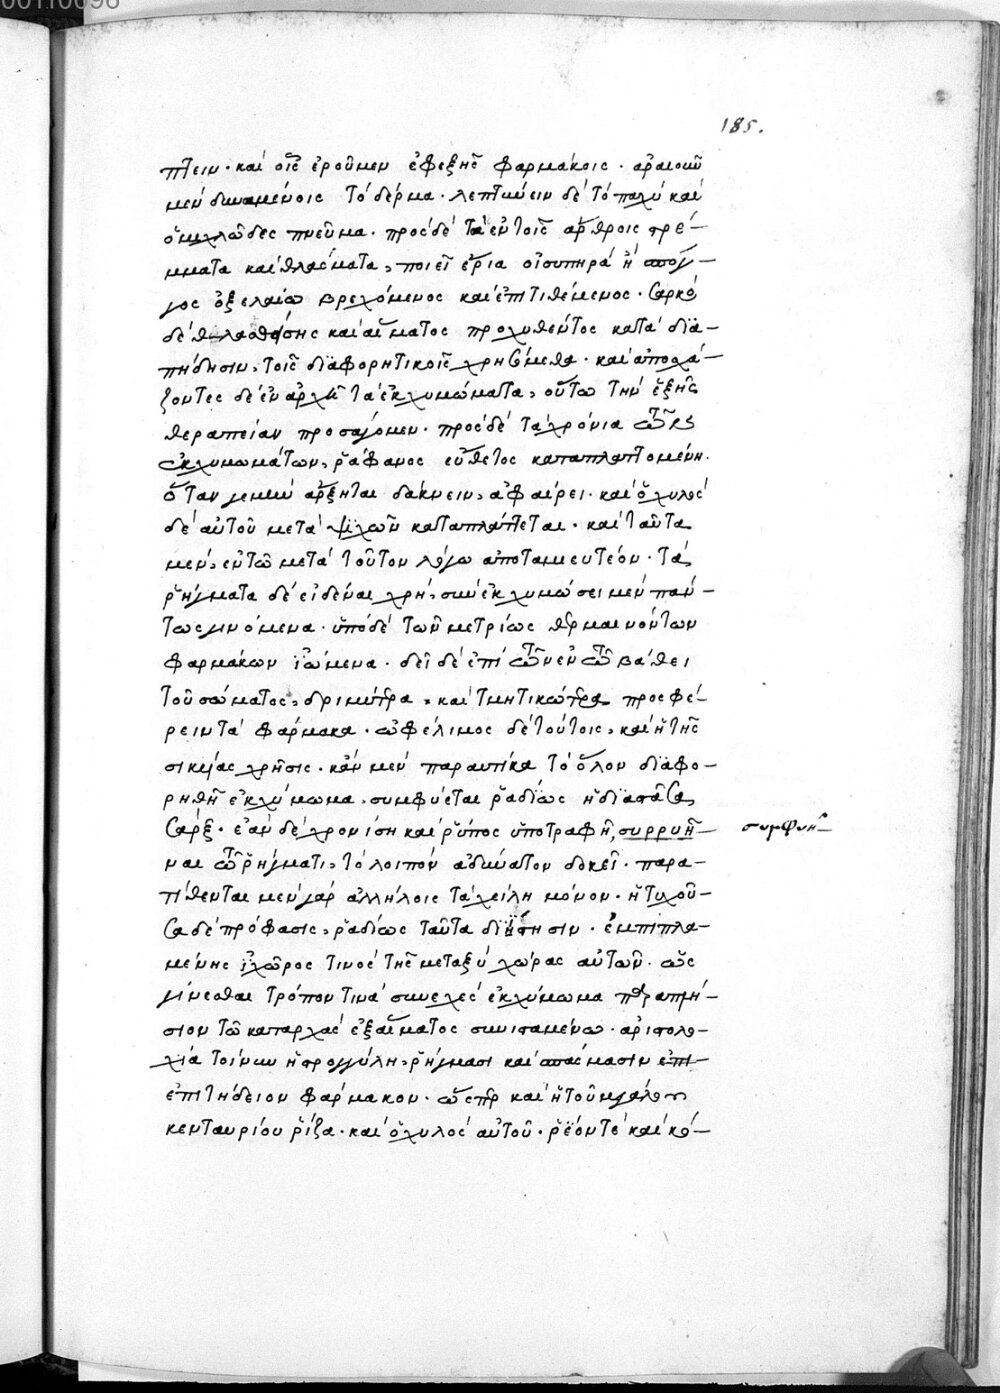 185.
πτειν· καὶ οἷς ἐροῦμεν ἐφεξῆς φαρμάκοις· ἀραιοῦν
μὲν δυναμένοις τὸ δέρμα· λεπτύνειν δὲ τὸ παχὺ καὶ
ὁμιχλῶδες πνεῦμα· πρὸς δὲ τὰ ἐν τοῖς ἄρθροις τρέ-
μματα καὶ θλάσματα, ποιεῖ ἔρια οἰσυπηρὰ ἢ σπόγ-
γος ὀξελαίω βρεχόμενος καὶ ἐπιτιθέμενος· σαρκὸ
δὲ θλασθείσης καὶ αἵματος προχυθέντος κατὰ δϊα-
πήδησιν, τοῖς δϊαφορητικοῖς χρησόμεθα· καὶ ἀποχά-
ζοντες δὲ ἐν ἀρχῆ τὰ ἐκχυμώματα, οὕτω τὴν ἑξῆς
θεραπείαν προσάγομεν· πρὸς δὲ τὰ χρόνια τῶν
ἐκχυμωμάτων, ῥάφανος εὔθετος καταπλαττομένη·
ὅταν μέντοι ἄρξηται δάκνειν, ἀφαίρει· καὶ ὁ χυλὸς
δὲ αὐτοῦ μετὰ ψιχῶν καταπλάττεται· καὶ ταῦτα
μὲν, ἐν τῶ μετὰ τοῦτον λόγω ἀποταμευτέον· τὰ
ῥήγματα δὲ εἰδέναι χρὴ, σὺν ἐκχυμώσει μὲν πάν-
τως γινόμενα· ὑπὸ δὲ τῶν μετρίως θερμαινόντων
φαρμάκων ἰώμενα· δεῖ δὲ ἐπὶ τῶν ἐν τῶ βάθει
τοῦ σώματος, δριμύτερα, καὶ τμητικώτερα προσφέ-
ρειν τὰ φάρμακα· ὠφέλιμος δὲ τούτοις, καὶ ἡ τῆς
σικύας χρῆσις· κἂν μὲν παραυτίκα τὸ ὅλον δϊαφο-
ρηθῆ ἐκχύμωμα, συμφύεται ῥαδίως ἡ δϊασπᾶσα
σάρξ· ἐὰν δὲ χρονίση καὶ ῥύπος ὑποτραφῆ, συρρυῆ-
ναι τῶ ῥήγματι, τὸ λοιπὸν ἀδύνατον δοκεῖ· παρα-
τίθενται μὲν γὰρ ἀλλήλοις τὰ χείλη μόνον· ἡ τυχοῦ-
σα δὲ πρόφασις, ῥαδίως ταῦτα δϊΐστησιν· ἐμπιπλα-
μένης ἰχῶρος τινὸς τῆς μεταξὺ χώρας αὐτῶν· ὡς
γίνεσθαι τρόπον τινὰ συνεχὲς ἐκχύμωμα παραπλή-
σιον τῶ καταρχὰς ἐξαἵματος συνισταμένω· ἀριστολο-
χία τοίνυν ἡ στρογγύλη, ῥήγμασι καὶ σπάσμασιν ἐπι-
ἐπιτήδειον φάρμακον· ὥσπερ καὶ ἡ τοῦ μεγάλου
κενταυρίου ῥίζα· καὶ ὁ χυλὸς αὐτοῦ· ῥέόν τὲ καὶ κό-
συμφυῆ-